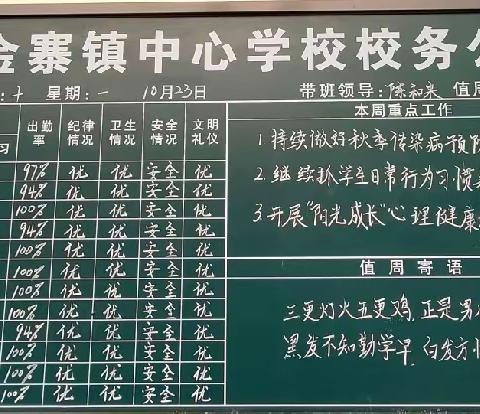 金寨镇中心学校校务公
: 十 星期: 一 10月23日 带班领导: 陈 来 值周
出勤率 纪律情况 卫生情况 安全情况 文明礼仪
习
97% 优 优 安全 优
94% 优 优 安全 优
100% 优 优 安全 优
94% 优 优 安全 优
100% 优 优 安全 优
100% 优 优 安全 优
100% 优 优 安全 优
100% 优 优 安全 优
94% 优 优 安全 优
100% 优 优 安全 优
100% 优 优 安全 优
100% 优 优 安全 优
本周重点工作
1 持续做好秋季传染病预防
2. 继续抓学生日常行为习惯
3. 开展“阳光成长”心理健康
值周寄语
三更灯火五更鸡,正是男
黑发不知勤学早,白发方